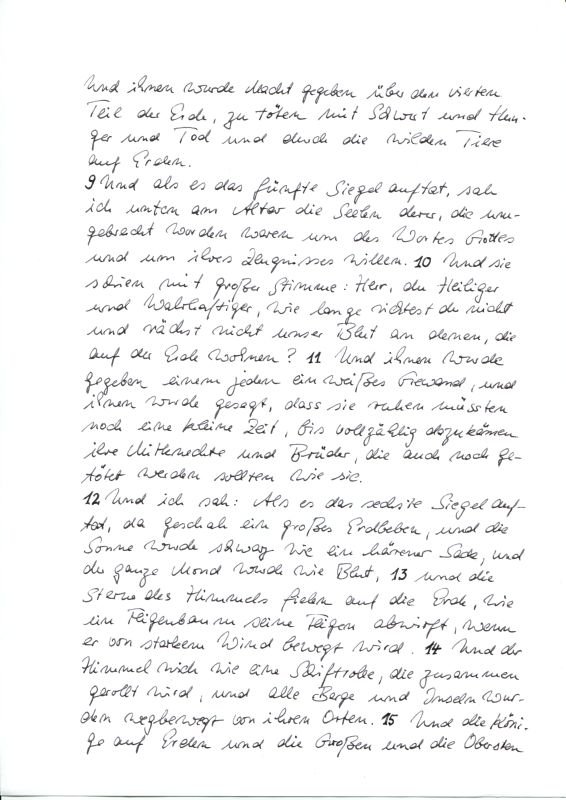 Und ihnen wurde Macht gegeben über den vierten
Teil der Erde, zu töten mit Schwert und Hun-
ger und Tod und durch die wilden Tiere
auf Erden.
9 Und als es das fünfte Siegel auftat, sah
ich unten am Altar die Seelen derer, die um-
gebracht worden waren um des Wortes Gottes
und um ihres Zeugnisses willen. 10 Und sie
schrien mit großer Stimme: Herr, du Heiliger
und Wahrhaftiger, wie lange richtest du nicht
und rächst nicht unser Blut an denen, die
auf der Erde wohnen? 11 Und ihnen wurde
gegeben einem jeden ein weißes Gewand, und
ihnen wurde gesagt, dass sie ruhen müssten
noch eine kleine Zeit, bis vollzählig dazukämen
ihre Mitknechte und Brüder, die auch noch ge-
tötet werden sollten wie sie.
12 Und ich sah: Als es das sechste Siegel auf-
tat, da geschah ein großes Erdbeben, und die
Sonne wurde schwarz wie ein härener Sack, und
der ganze Mond wurde wie Blut, 13 und die
Sterne des Himmels fielen auf die Erde, wie
ein Feigenbaum seine Feigen abwirft, wenn
er von starkem Wind bewegt wird. 14 Und der
Himmel wich wie eine Schriftrolle, die zusammen
gerollt wird, und alle Berge und Inseln wur-
den wegbewegt von ihren Orten. 15 Und die Köni-
ge auf Erden und die Großen und die Obersten